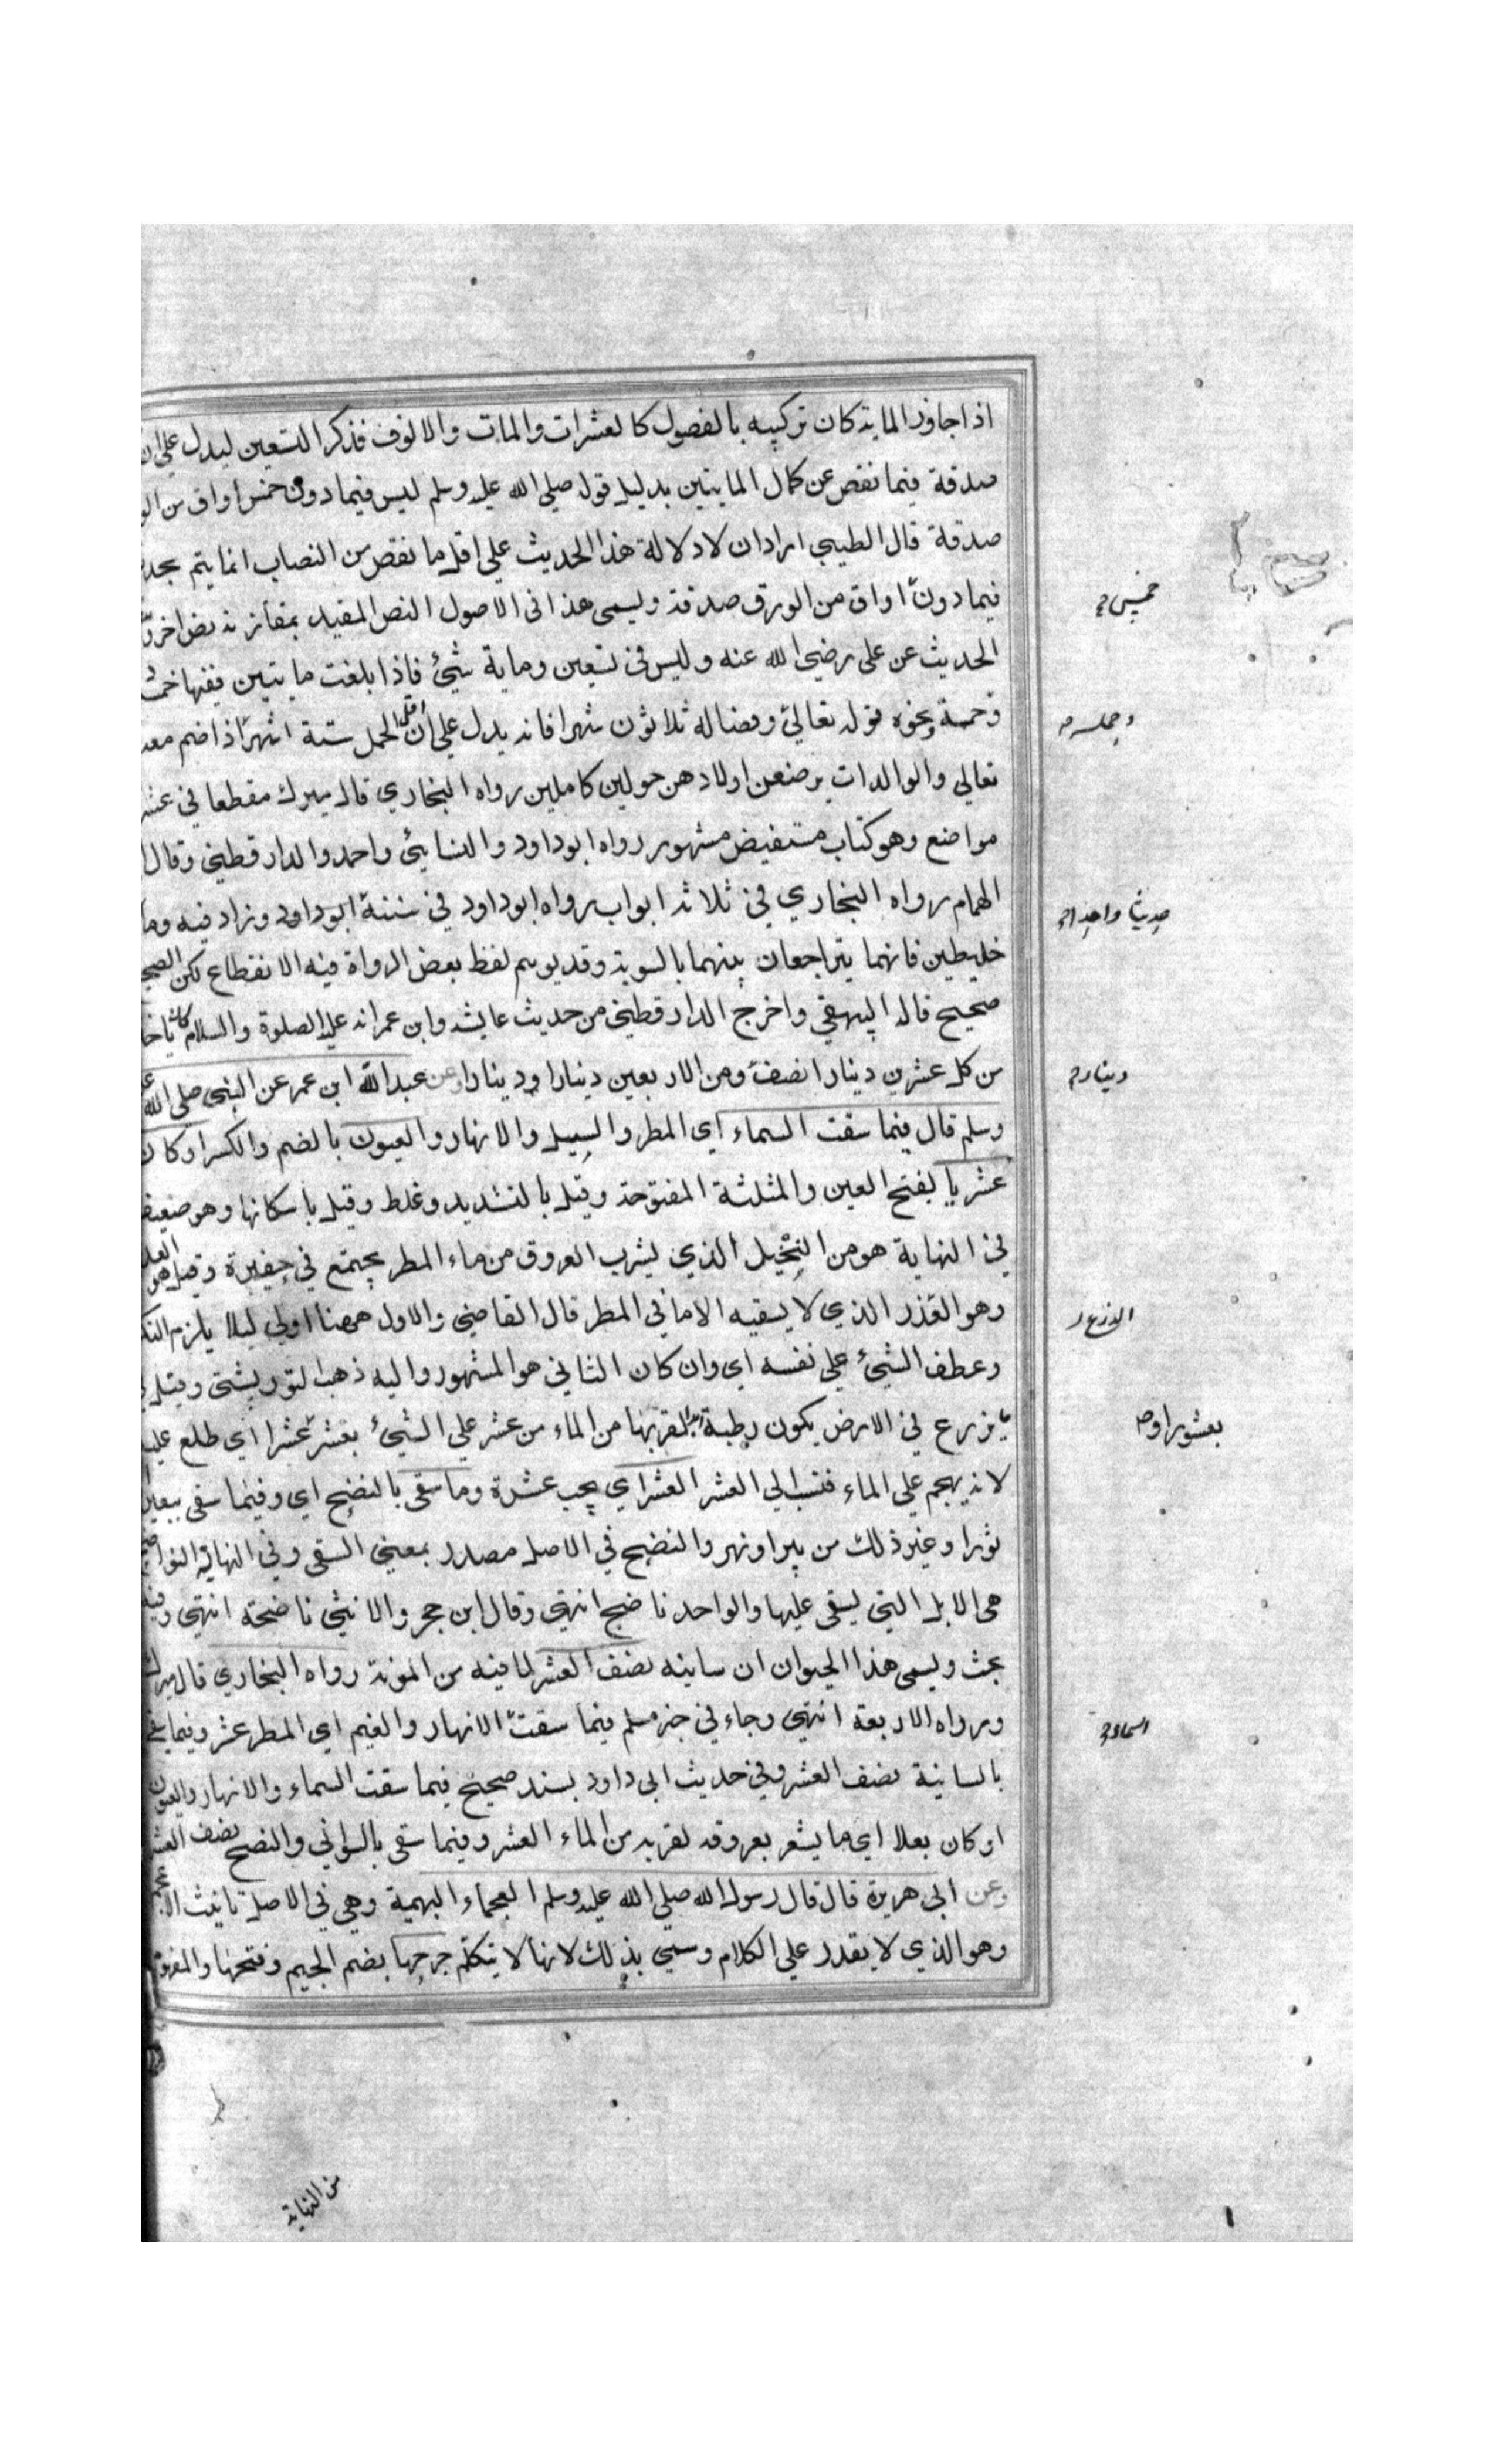 اذا جاوز الماية كان تركيبه بالفصول كالعشرات والمات والالوف فذكر التسعين ليدل على ان
صدقة فيما نقص عن كمال المايتين بدليل قوله صلى الله عليه وسلم ليس فيما دون خمس اواق من
صدقة قال الطيبي اراد ان لا دلالة هذا الحديث على اقل ما نقص من النصاب انما يتم
فيما دون اواق من الورق صدقة ويسمى هذا فى الاصول النص المقيد بمقارنة نص اخر
خمس
الحديث عن على رضى الله عنه وليس فى تسعين وماية شيئ فاذا بلغت مايتين ففيها خمسة
وخمسة ونحوه قوله تعالى وفصاله ثلاثون شهرا فانه يدل على ان اقل الحمل ستة اشهر اذا ضم معه
وحمله
تعالى والوالدات يرضعن اولادهن حولين كاملين رواه البخاري قال ميرك مقطعا في
مواضع وهو كتاب مستفيض مشهور رواه ابو داود والنسايئ واحمد والدارقطني وقال
الهمام رواه البخاري في ثلاثة ابواب رواه ابو داود في سننه ابو داود وزاد فيه وما
حديثا واحدا
خليطين فانهما يتراجعان بينهما بالسوية وقد يوهم لفظ بعض الرواة فيه الانقطاع لكن الصحيح
صحيح قاله البيهقي واخرج الدارقطني من حديث عايشة وابن عمر انه عليه الصلوة والسلام كان
من كل عشرين دينارا نصف ومن الاربعين دينارا ودينارا وعن عبد الله ابن عمر عن النبى صلى الله
دينار
وسلم قال فيما سقت السماء اي المطر والسيل والانهار والعيون بالضم والكسر او كان
عشريا بفتح العين والمثلثة المفتوحة وقيل بالتشديد وغلط وقيل باسكانها وهو ضعيف
في النهاية هو من النخيل الذي يشرب العروق من ماء المطر يجتمع في حفيرة وقيل هو
وهو القذر الذي لا يسقيه الا ماني المطر قال القاضي والاول ههنا اولى ليلا يلزم
الزرع
وعطف الشيئ على نفسه اي وان كان الثاني هو المشهور واليه ذهب التوربشتى وقيل
يزرع في الارض يكون رطبة لقربها من الماء من عشر على الشيئ بعشر عشرا اي طلع عليه
لانه يهجم على الماء فنسب الى العشر العشر اي يجب عشرة وما سقى بالنضح اي وفيما سقى ببعير
ثورا وغير ذلك من بير او نهر والنضح في الاصل مصدر بمعنى السقى وفي النهاية
هى الابل التي يسقى عليها والواحد ناضح انتهى وقال ابن حجر والانثى ناضحة انتهى وفيه
بحث ويسمى هذا الحيوان ان سانيه نصف العشر لما فيه من المؤنة رواه البخاري قال ميرك
ورواه الاربعة انتهى وجاء في خبر مسلم فيما سقت الانهار والغيم اي المطر عشر وفيما سقى
بالسانية نصف العشر وفي حديث ابى داود بسند صحيح فيما سقت السماء والانهار والعيون
او كان بعلا اى ما يشعر بعروقه لقربه من الماء العشر وفيما سقى بالسواني والنضح نصف العشر
وعن ابى هريرة قال قال رسول الله صلى الله عليه وسلم العجماء البهيمة وهي في الاصل تانيث
وهو الذي لا يقدر على الكلام وسمي بذلك لانها لا يتكلم جرحها بضم الجيم وفتحها
من النهاية